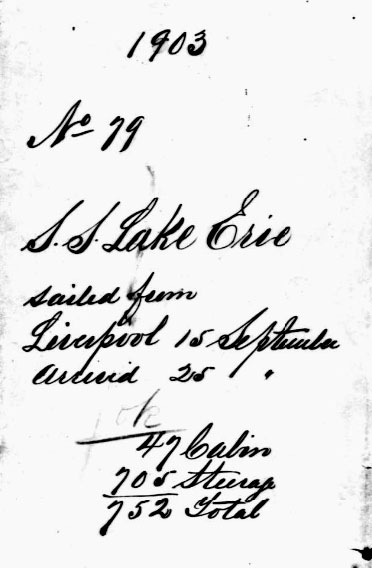 1903
No 79
S.S. Lake Erie
sailed from
Liverpool 15 September
arrived 25 "
ok
47 Cabin
705 Steerage
752 Total